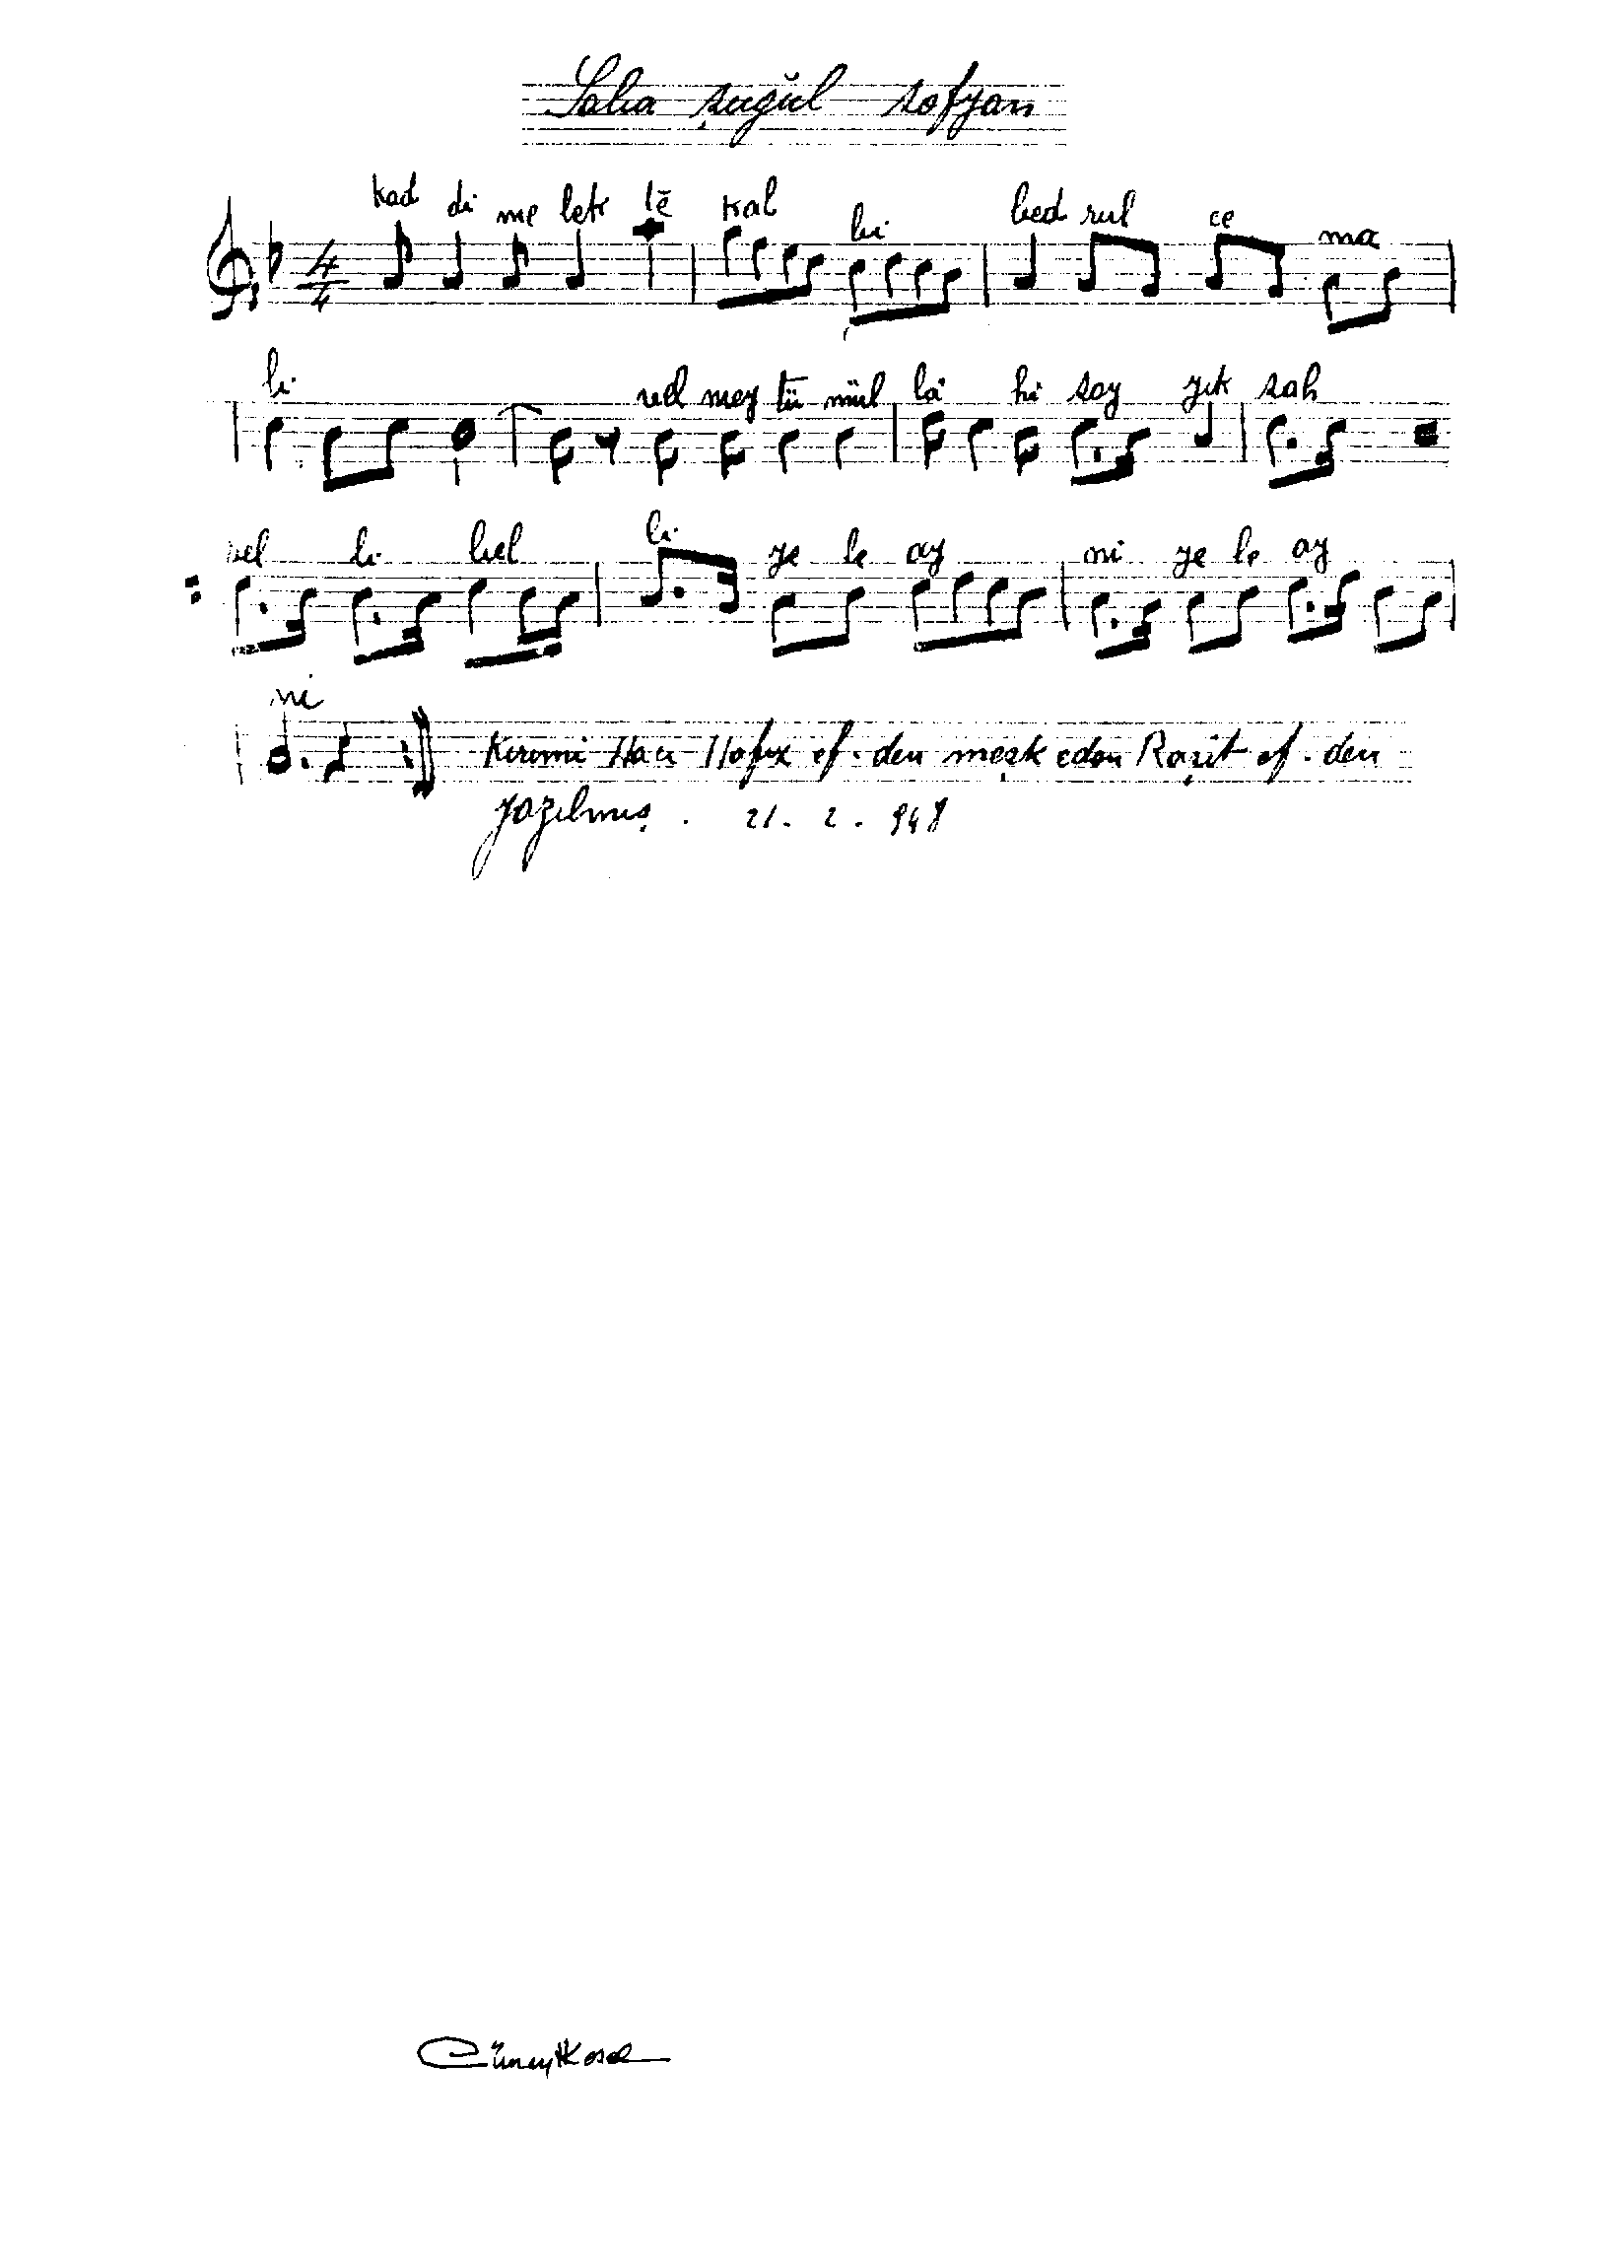 Saba şuğûl sofyan
kad di me lek tē kal bi bed rul ce ma
4
4
li ved mey tü mül lâ hi say yık sah
bel li bel li ye le ay ni ye le ay
ni
Kırımi Hacı Hafız ef. den meşk eden Raşit ef. den
yazılmış. 21. 2. 948
Cüneyt Kosal